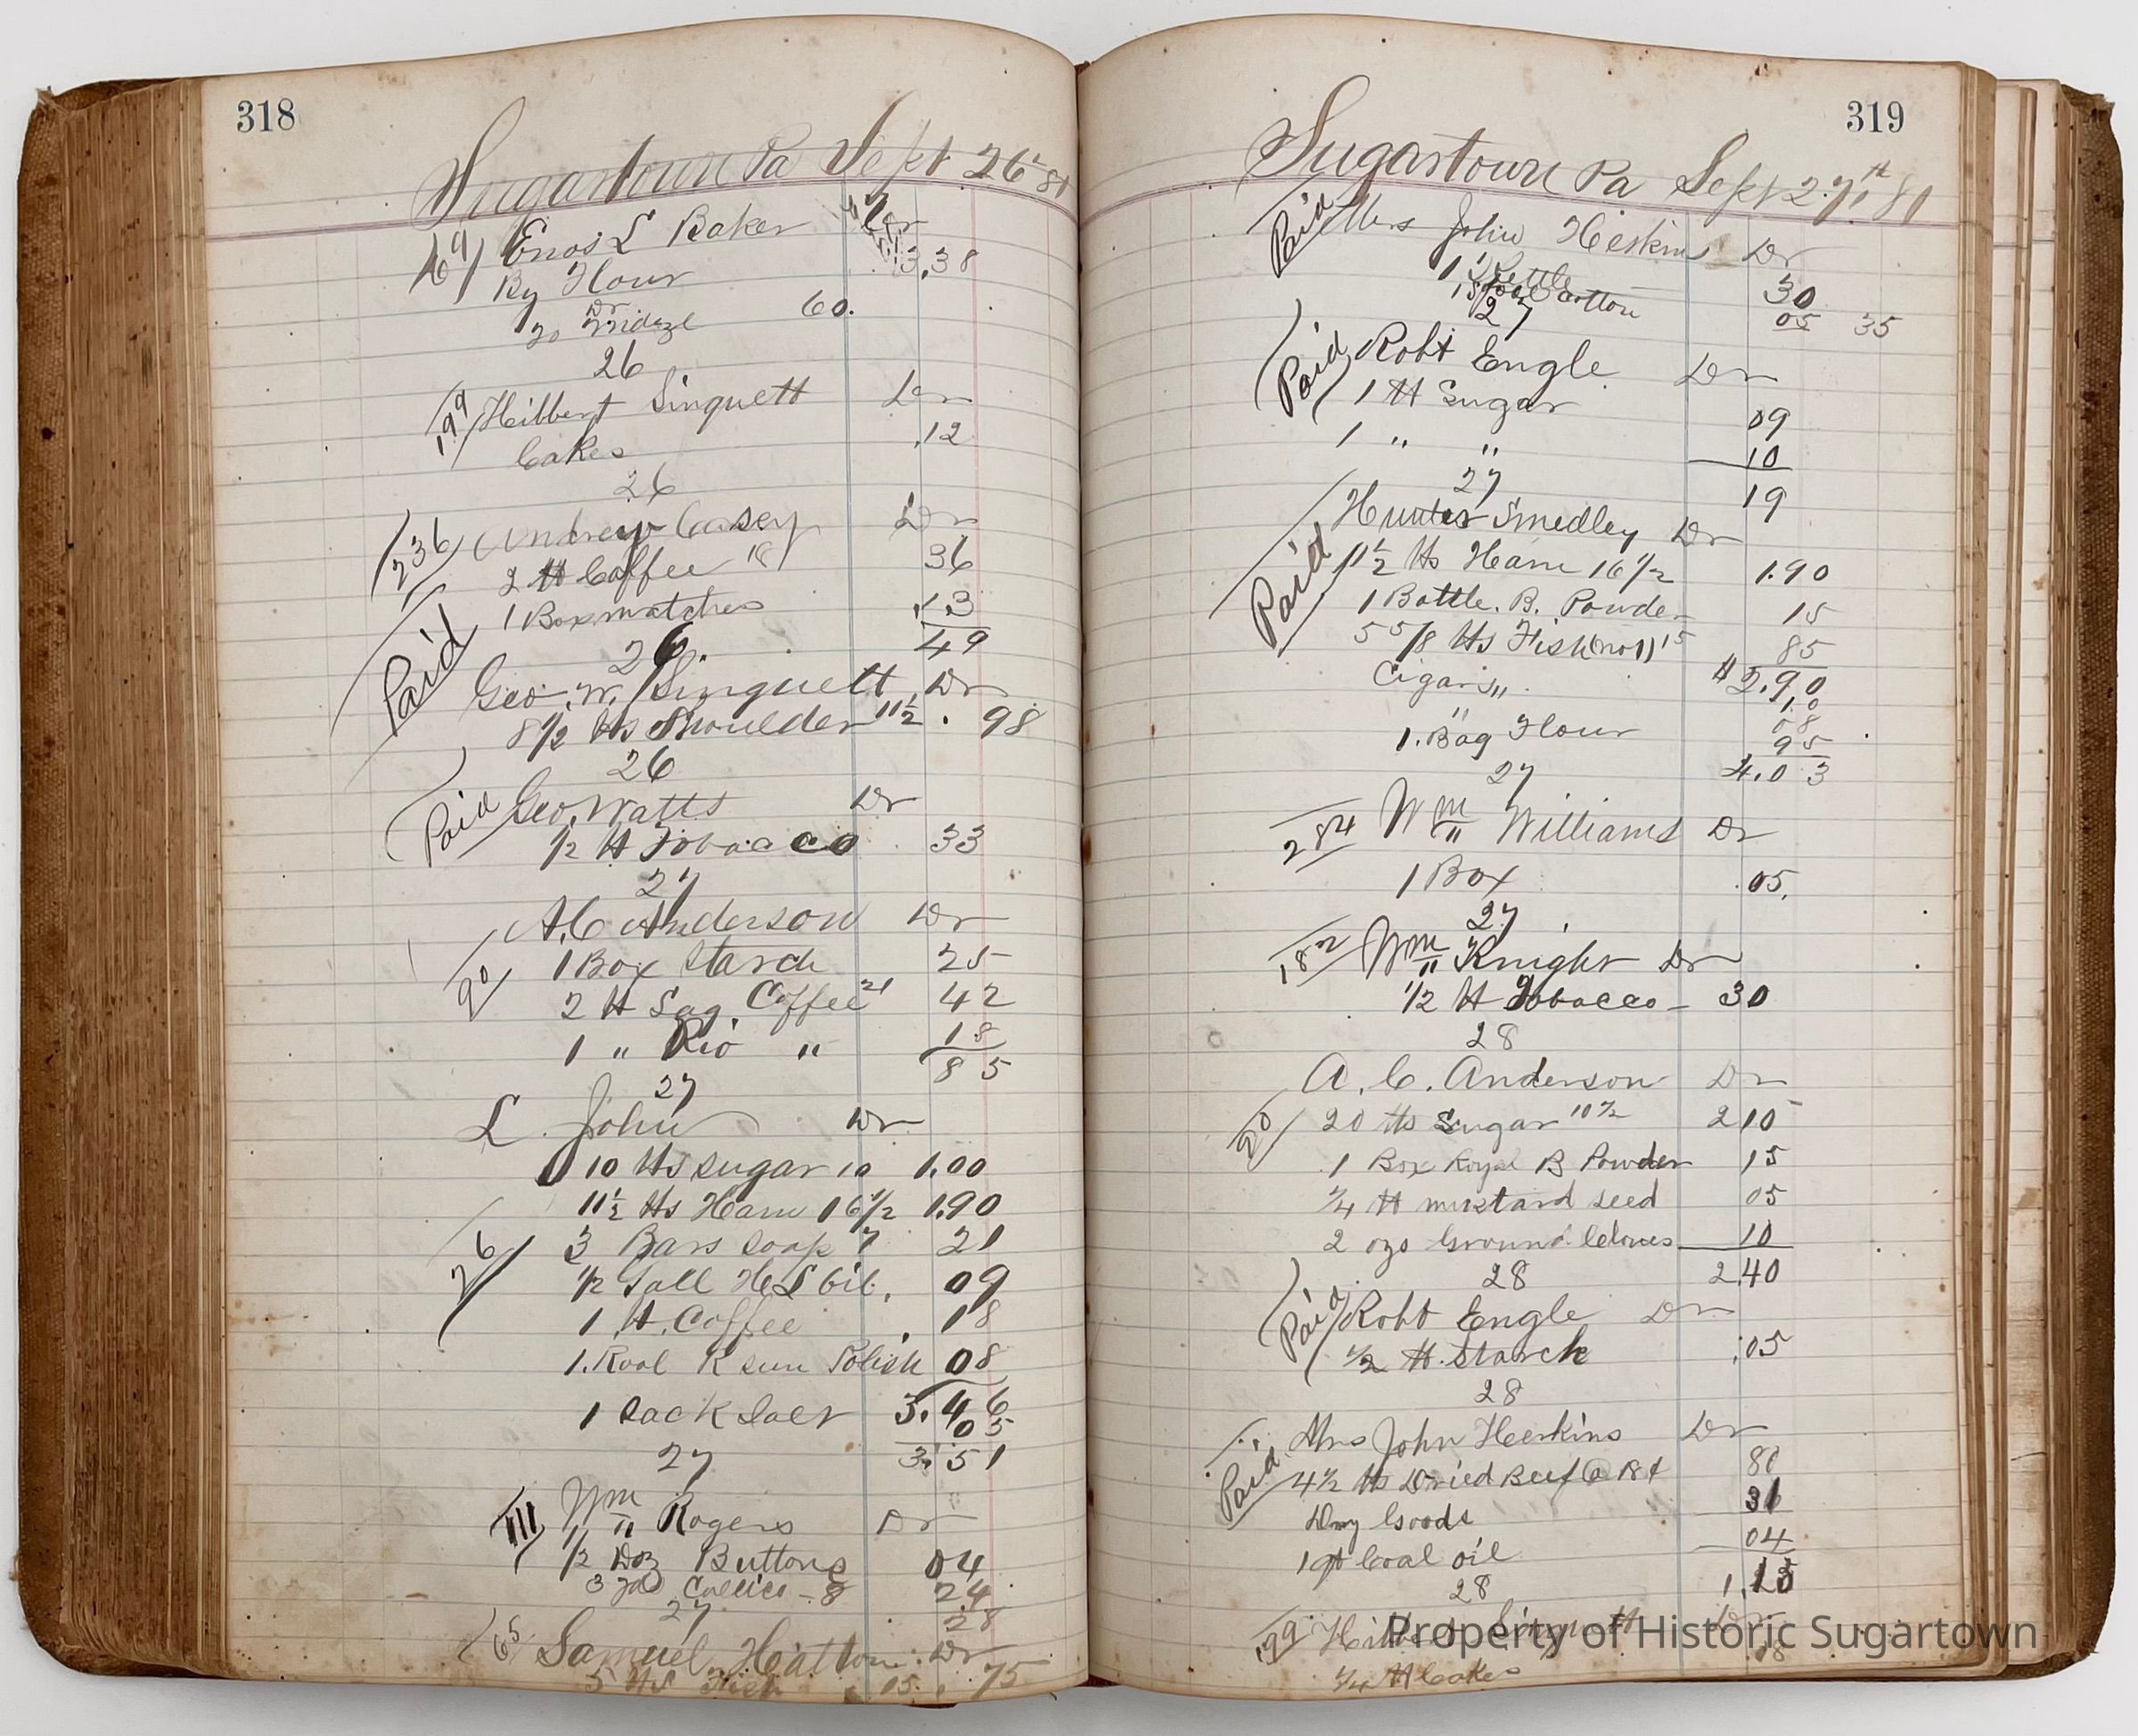 318
Sugartown Pa Sept 26th 81
164 Enos L Baker Dr
By Flour 3.38
Dr 60.
20
26
199 Hibbert Singuett Dr
Cakes .12
26
236 Andrew Casey Dr
2 ℔ Coffee 18 36
1 Box matches .13
49
26.
Paid Geo. W. Singuett Dr
8 1/2 ℔s Shoulder 11 1/2 . 98
26
Paid Geo. Watts Dr
1/2 ℔ Tobacco 33
27
A. C Anderson Dr
90 1 Box Starch 25
2 ℔ Lag. Coffee 21 42
1 " Rio " 18
85
27
L. John Dr
10 ℔s sugar 10 1.00
11 1/2 ℔s Ham 16 1/2 1.90
26 3 Bars soap 7 21
1/2 Gall H L Oil. 09
1 ℔. Coffee 18
1. R sun Polish 08
3.46
1 sack salt 05
27 3.51
111 Wm Rogers Dr
1/2 Doz Buttons 04
3 yds Callico - 8 24
27 28
65 Samuel Hatton Dr
5 ℔s Fish 15. 75
319
Sugartown Pa Sept 27th 81
Paid Mrs John Heskins Dr
1 Kettle 30
1 Spool Cotton 05 35
27
Paid Robt Engle Dr
1 ℔ Sugar 09
1 " " 10
27 19
Paid Hunter Smedley Dr
11 1/2 ℔s Ham 16 1/2 1.90
1 Bottle. B. Powder 15
5 5/8 ℔s Fish (no 1) 15 85
$2.90
Cigars " 10
" 08
1. Bag Flour 95
27 4.03
284 Wm Williams Dr
1 Box .05.
27
182 Wm Knight Dr
1/2 ℔ Tobacco - 30
28
A. C. Anderson Dr
20 ℔s Sugar 10 1/2 2 10
1 Box Royal B Powder 15
1/4 ℔ mustard seed 05
2 ozs Ground Cloves 10
28 2.40
Paid Robt Engle Dr
1/2 ℔. Starch .05
28
Paid Mrs John Heskins Dr
4 1/2 ℔s Dried Beef @ 18¢ 80
Dry Goods 31
1 qt Coal oil 04
28 1.15
199 Hibbert Singuett Dr
1/4 ℔ Cakes 18
Property of Historic Sugartown